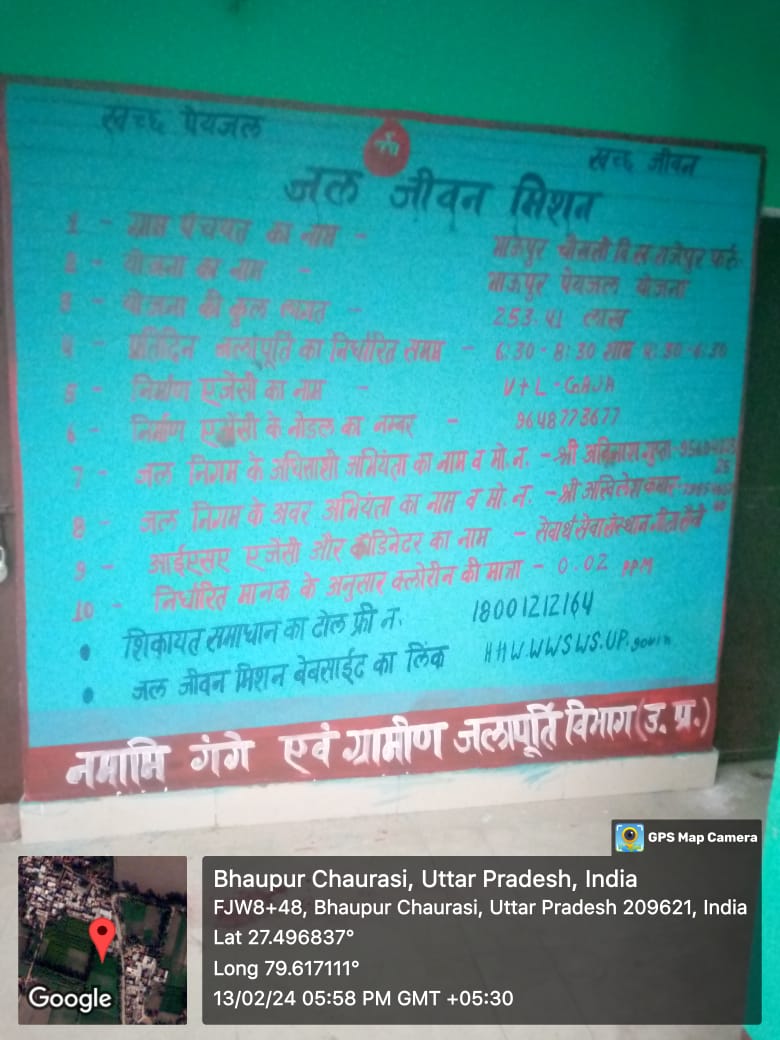 स्वच्छ पेयजल
स्वच्छ जीवन
जल जीवन मिशन
1 - ग्राम पंचयत का नाम - भाऊपुर चौरासी वि.ख. राजेपुर फर्रु.
2 - योजना का नाम - भाऊपुर पेयजल योजना
3 - योजना की कुल लागत - 253.41 लाख
4 - प्रतिदिन जलापूर्ति का निर्धारित समय - 6:30-8:30 शाम 4:30-6:30
5 - निर्माण एजेंसी का नाम - V+L-GAJA
6 - निर्माण एजेंसी के नोडल का नम्बर - 9648773677
7 - जल निगम के अधिसाशी अभियंता का नाम व मो.न. - श्री अविनाश गुप्ता
8 - जल निगम के अवर अभियंता का नाम व मो.न. - श्री अखिलेश कुमार
9 - आईएसए एजेंसी और कोडिनेटर का नाम - सेवार्थ सेवा संस्थान
10 - निर्धारित मानक के अनुसार क्लोरीन की मात्रा - 0.02 PPM
• शिकायत समाधान का टोल फ्री न. 18001212164
• जल जीवन मिशन बेबसाईट का लिंक HHW.WWSWS.UP.govin
नमामि गंगे एवं ग्रामीण जलापूर्ति विभाग (उ.प्र.)
GPS Map Camera
Bhaupur Chaurasi, Uttar Pradesh, India
FJW8+48, Bhaupur Chaurasi, Uttar Pradesh 209621, India
Lat 27.496837°
Long 79.617111°
13/02/24 05:58 PM GMT +05:30
Google